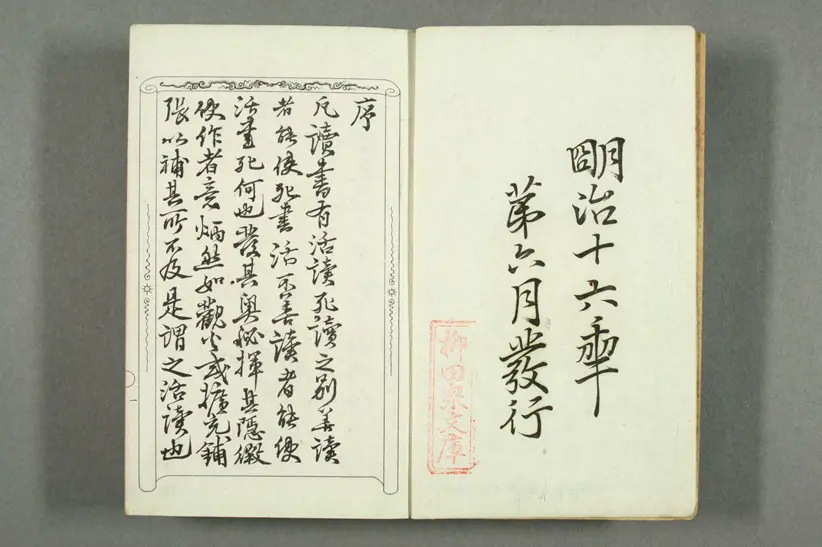 明治十六年
第六月發行
柳田泉文庫
序
凡讀書有活讀死讀之別善讀
者能使死書活不善讀者能使
活書死何也發其奧秘揮其隱微
使作者意炳然如觀火或擴充鋪
張以補其所不及是謂之活讀也